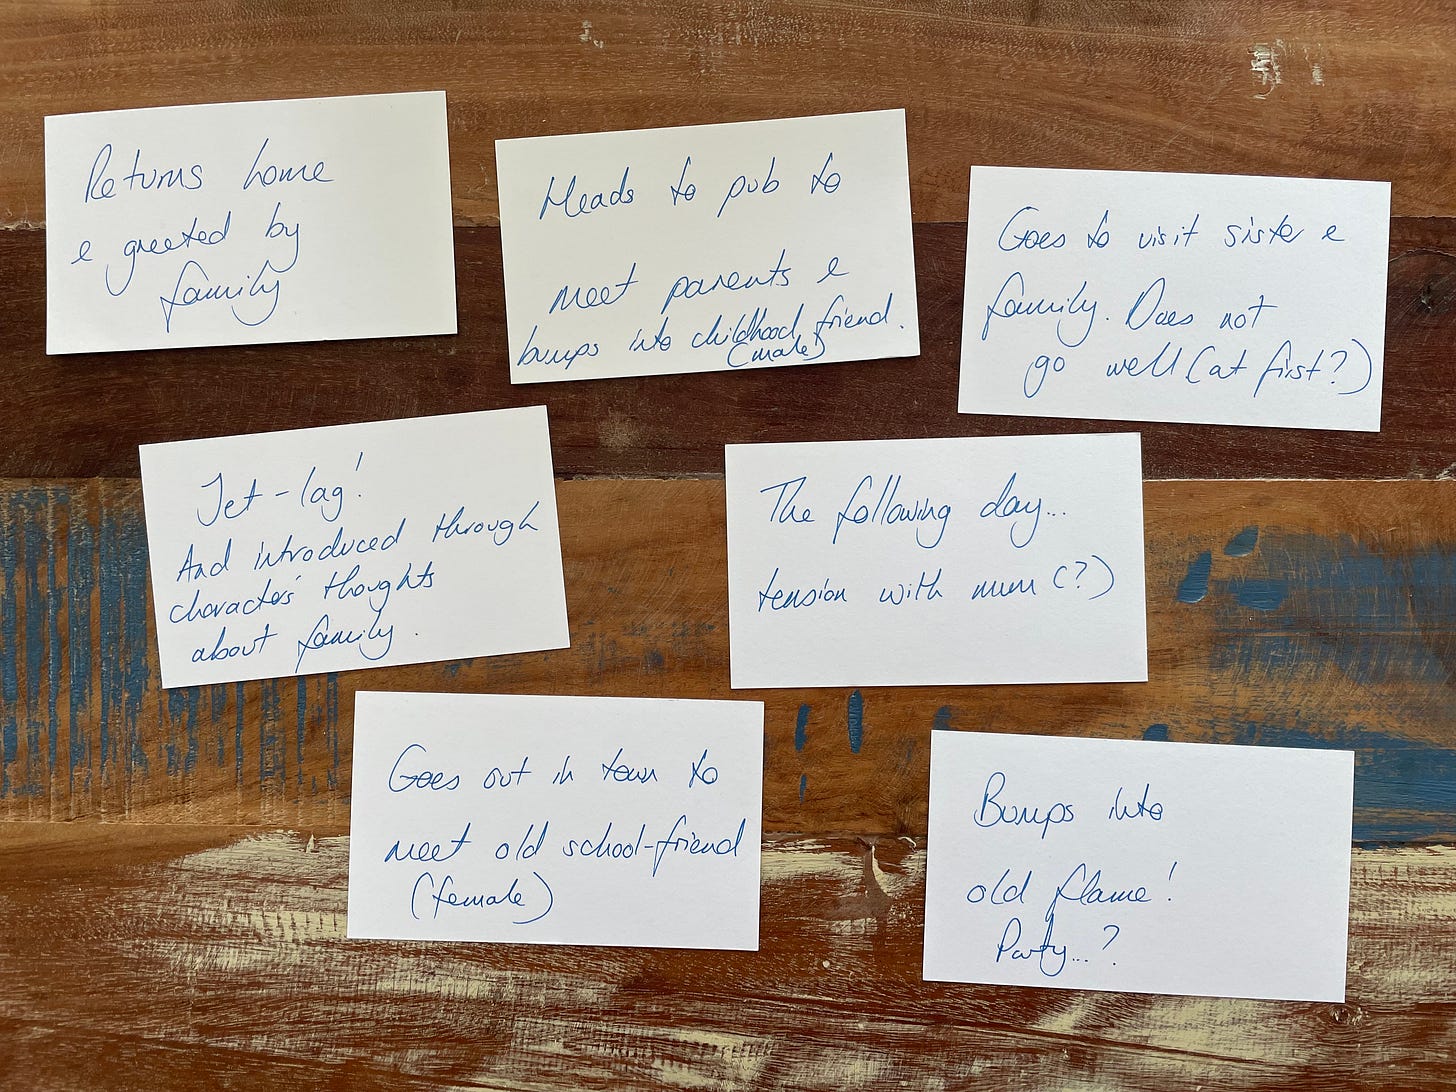 Returns home
e greeted by
family
Heads to pub to
meet parents e
bumps into childhood friend.
(male)
Goes to visit sister e
family. Does not
go well (at first?)
Jet-lag!
And introduced through
character's thoughts
about family.
The following day...
tension with mum (?)
Goes out in town to
meet old school-friend
(female)
Bumps into
old flame!
Party...?